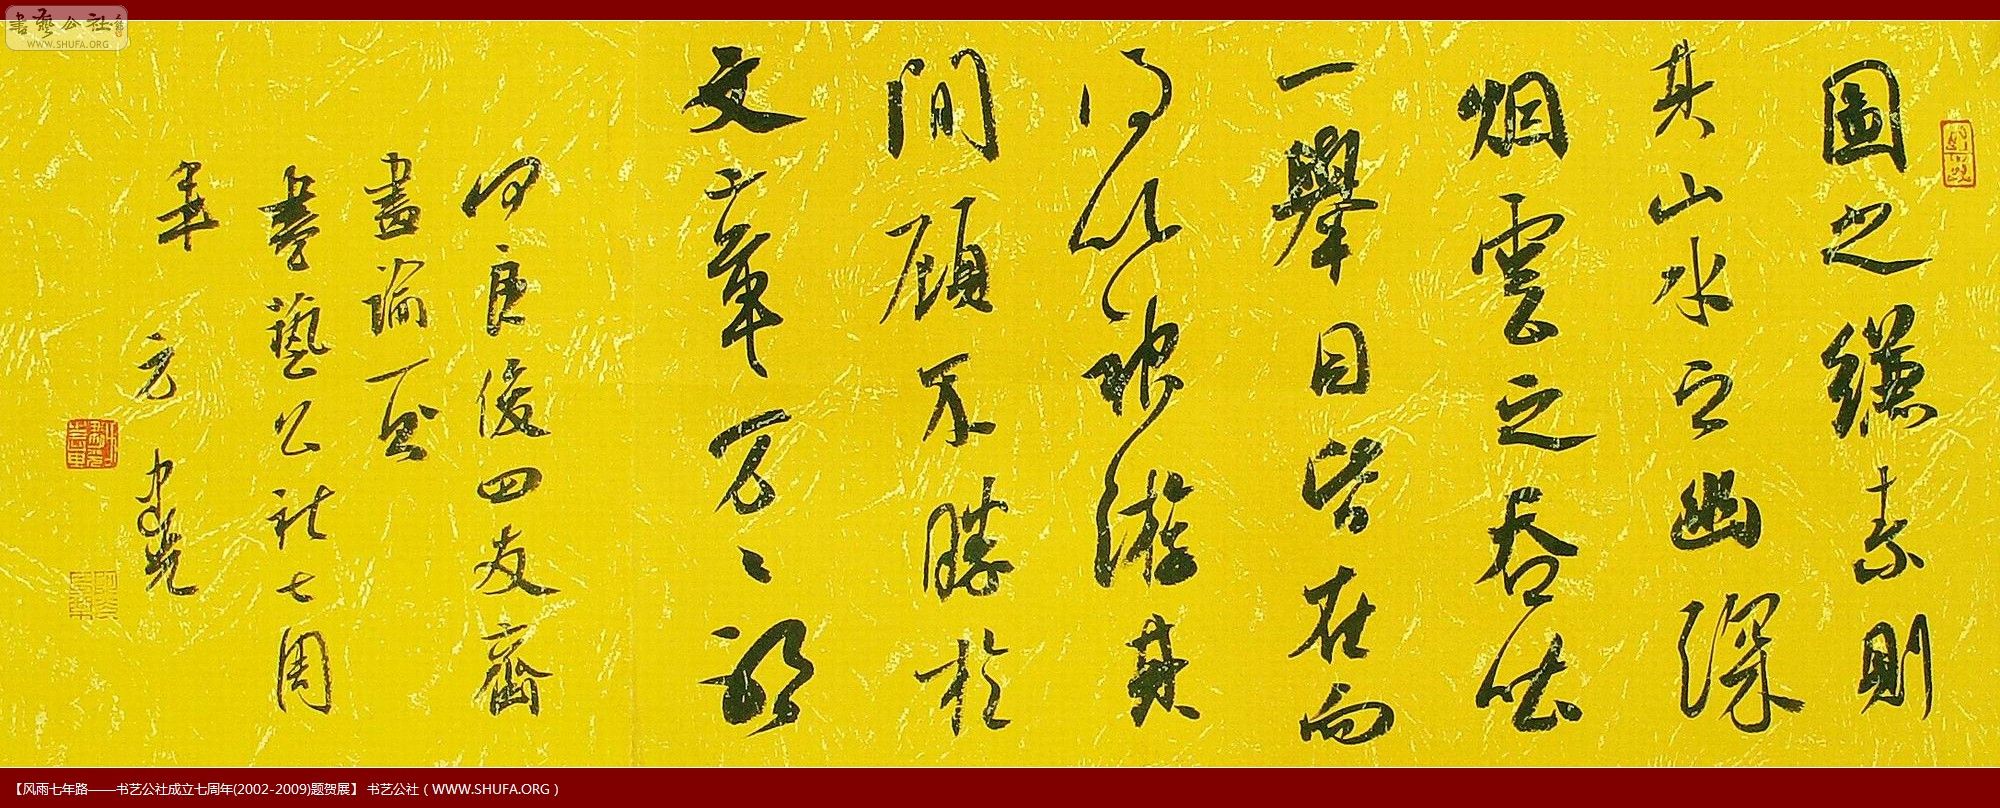 書藝公社
WWW.SHUFA.ORG
圖之縑素則
其山水之幽深
烟雲之吞吐
一舉目皆在而
得以神游其
間顧不勝於
文章万々耶
何良俊四友齋
畫論
書藝公社七周
年
【风雨七年路——书艺公社成立七周年(2002-2009)题贺展】 书艺公社 ( WWW.SHUFA.ORG )